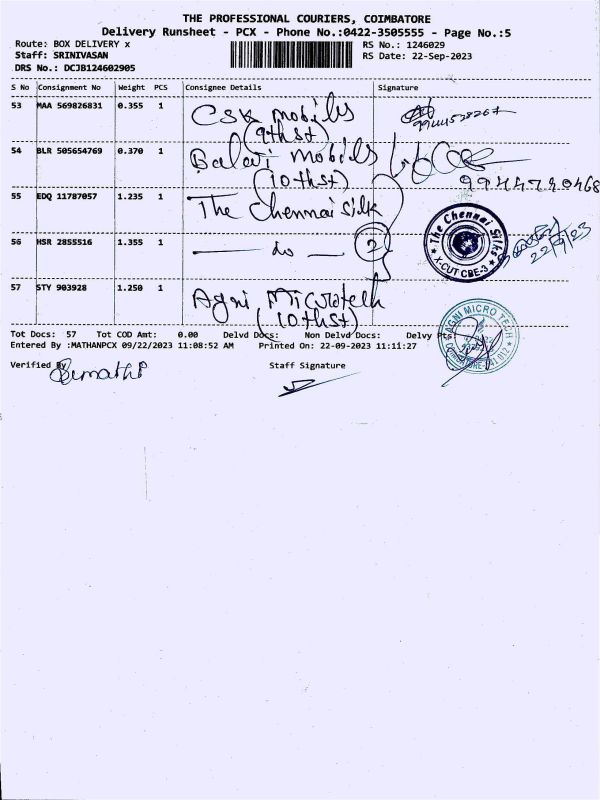 THE PROFESSIONAL COURIERS, COIMBATORE
Delivery Runsheet - PCX - Phone No.:0422-3505555 - Page No.:5
Route: BOX DELIVERY x
RS No.: 1246029
Staff: SRINIVASAN
RS Date: 22-Sep-2023
DRS No.: DCJB124602905
S No Consignment No Weight PCS Consignee Details Signature
53 MAA 569826831 0.355 1 CSK mobils
(9th st)
54 BLR 505654769 0.370 1 Balaji mobils
(10th st)
9944740468
55 EDQ 11787057 1.235 1 The Chennai Silk
The Chennai Silks
X-CUT CBE-3
22/9/23
56 HSR 2855516 1.355 1 — do — 2
57 STY 903928 1.250 1 Agni Microtech
(10th st)
AGNI MICRO TECH
Tot Docs: 57 Tot COD Amt: 0.00 Delvd Docs: Non Delvd Docs: Delvy
Entered By :MATHANPCX 09/22/2023 11:08:52 AM Printed On: 22-09-2023 11:11:27
Verified By
Staff Signature